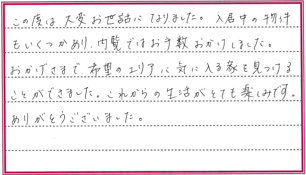 この度は大変お世話になりました。入居中の物件
もいくつかあり、内覧ではお手数おかけしました。
おかげさまで、希望のエリアに気に入る家を見つける
ことができました。これからの生活がとても楽しみです。
ありがとうございました。